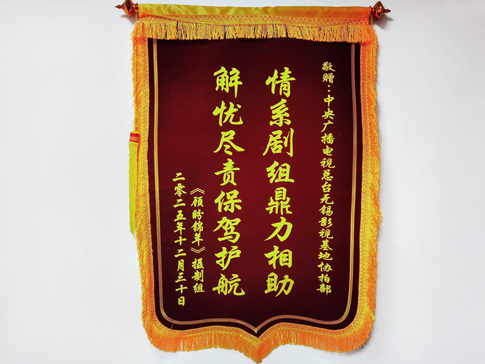 敬赠：中央广播电视总台无锡影视基地协拍部
情系剧组鼎力相助
解忧尽责保驾护航
《顾盼锦年》摄制组
二零二五年十二月三十日